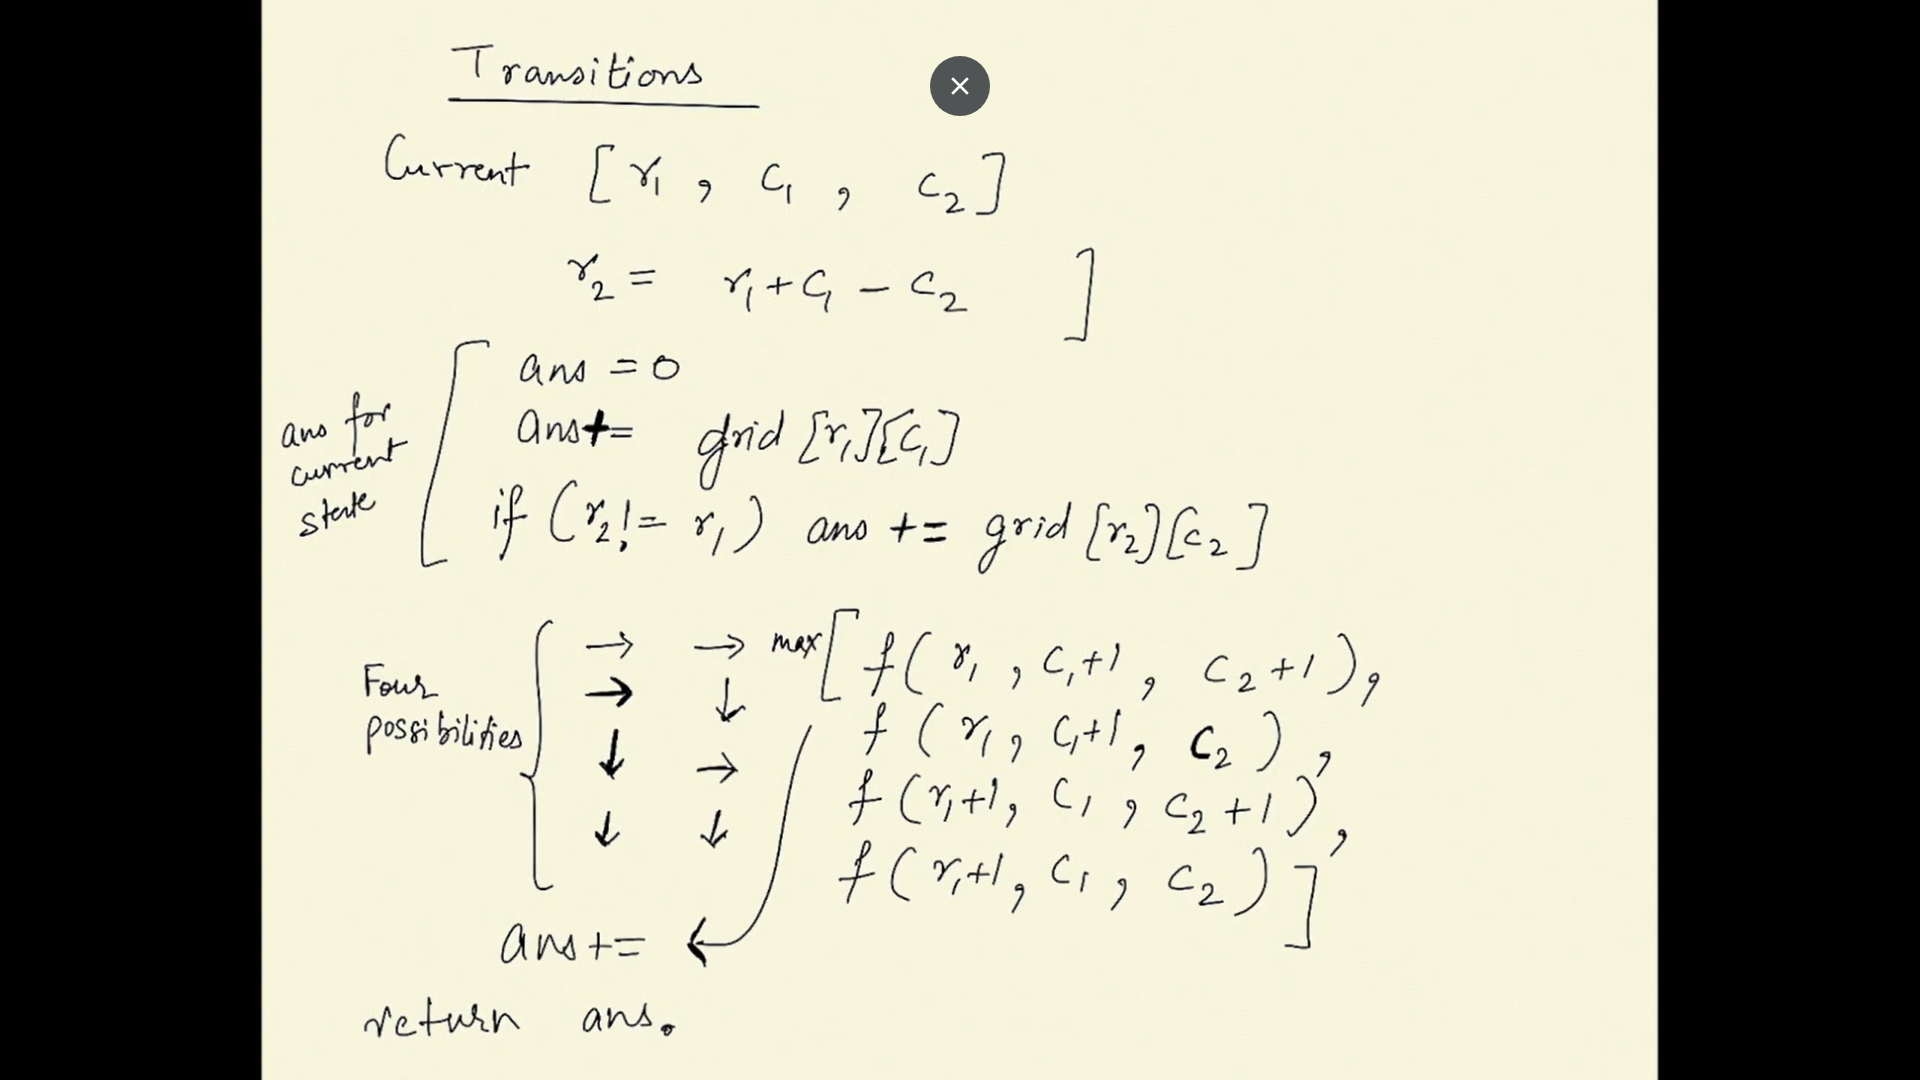 Transitions
Current [r₁, c₁, c₂]
r₂ = r₁+c₁ - c₂ ]
ans = 0
ans for current state
ans+= grid [r₁][c₁]
if (r₂ != r₁) ans += grid [r₂][c₂]
Four possibilities
→ → max[f(r₁, c₁+1, c₂+1),
→ ↓ f(r₁, c₁+1, c₂),
↓ → f(r₁+1, c₁, c₂+1),
↓ ↓ f(r₁+1, c₁, c₂)]
ans+= ←
return ans.